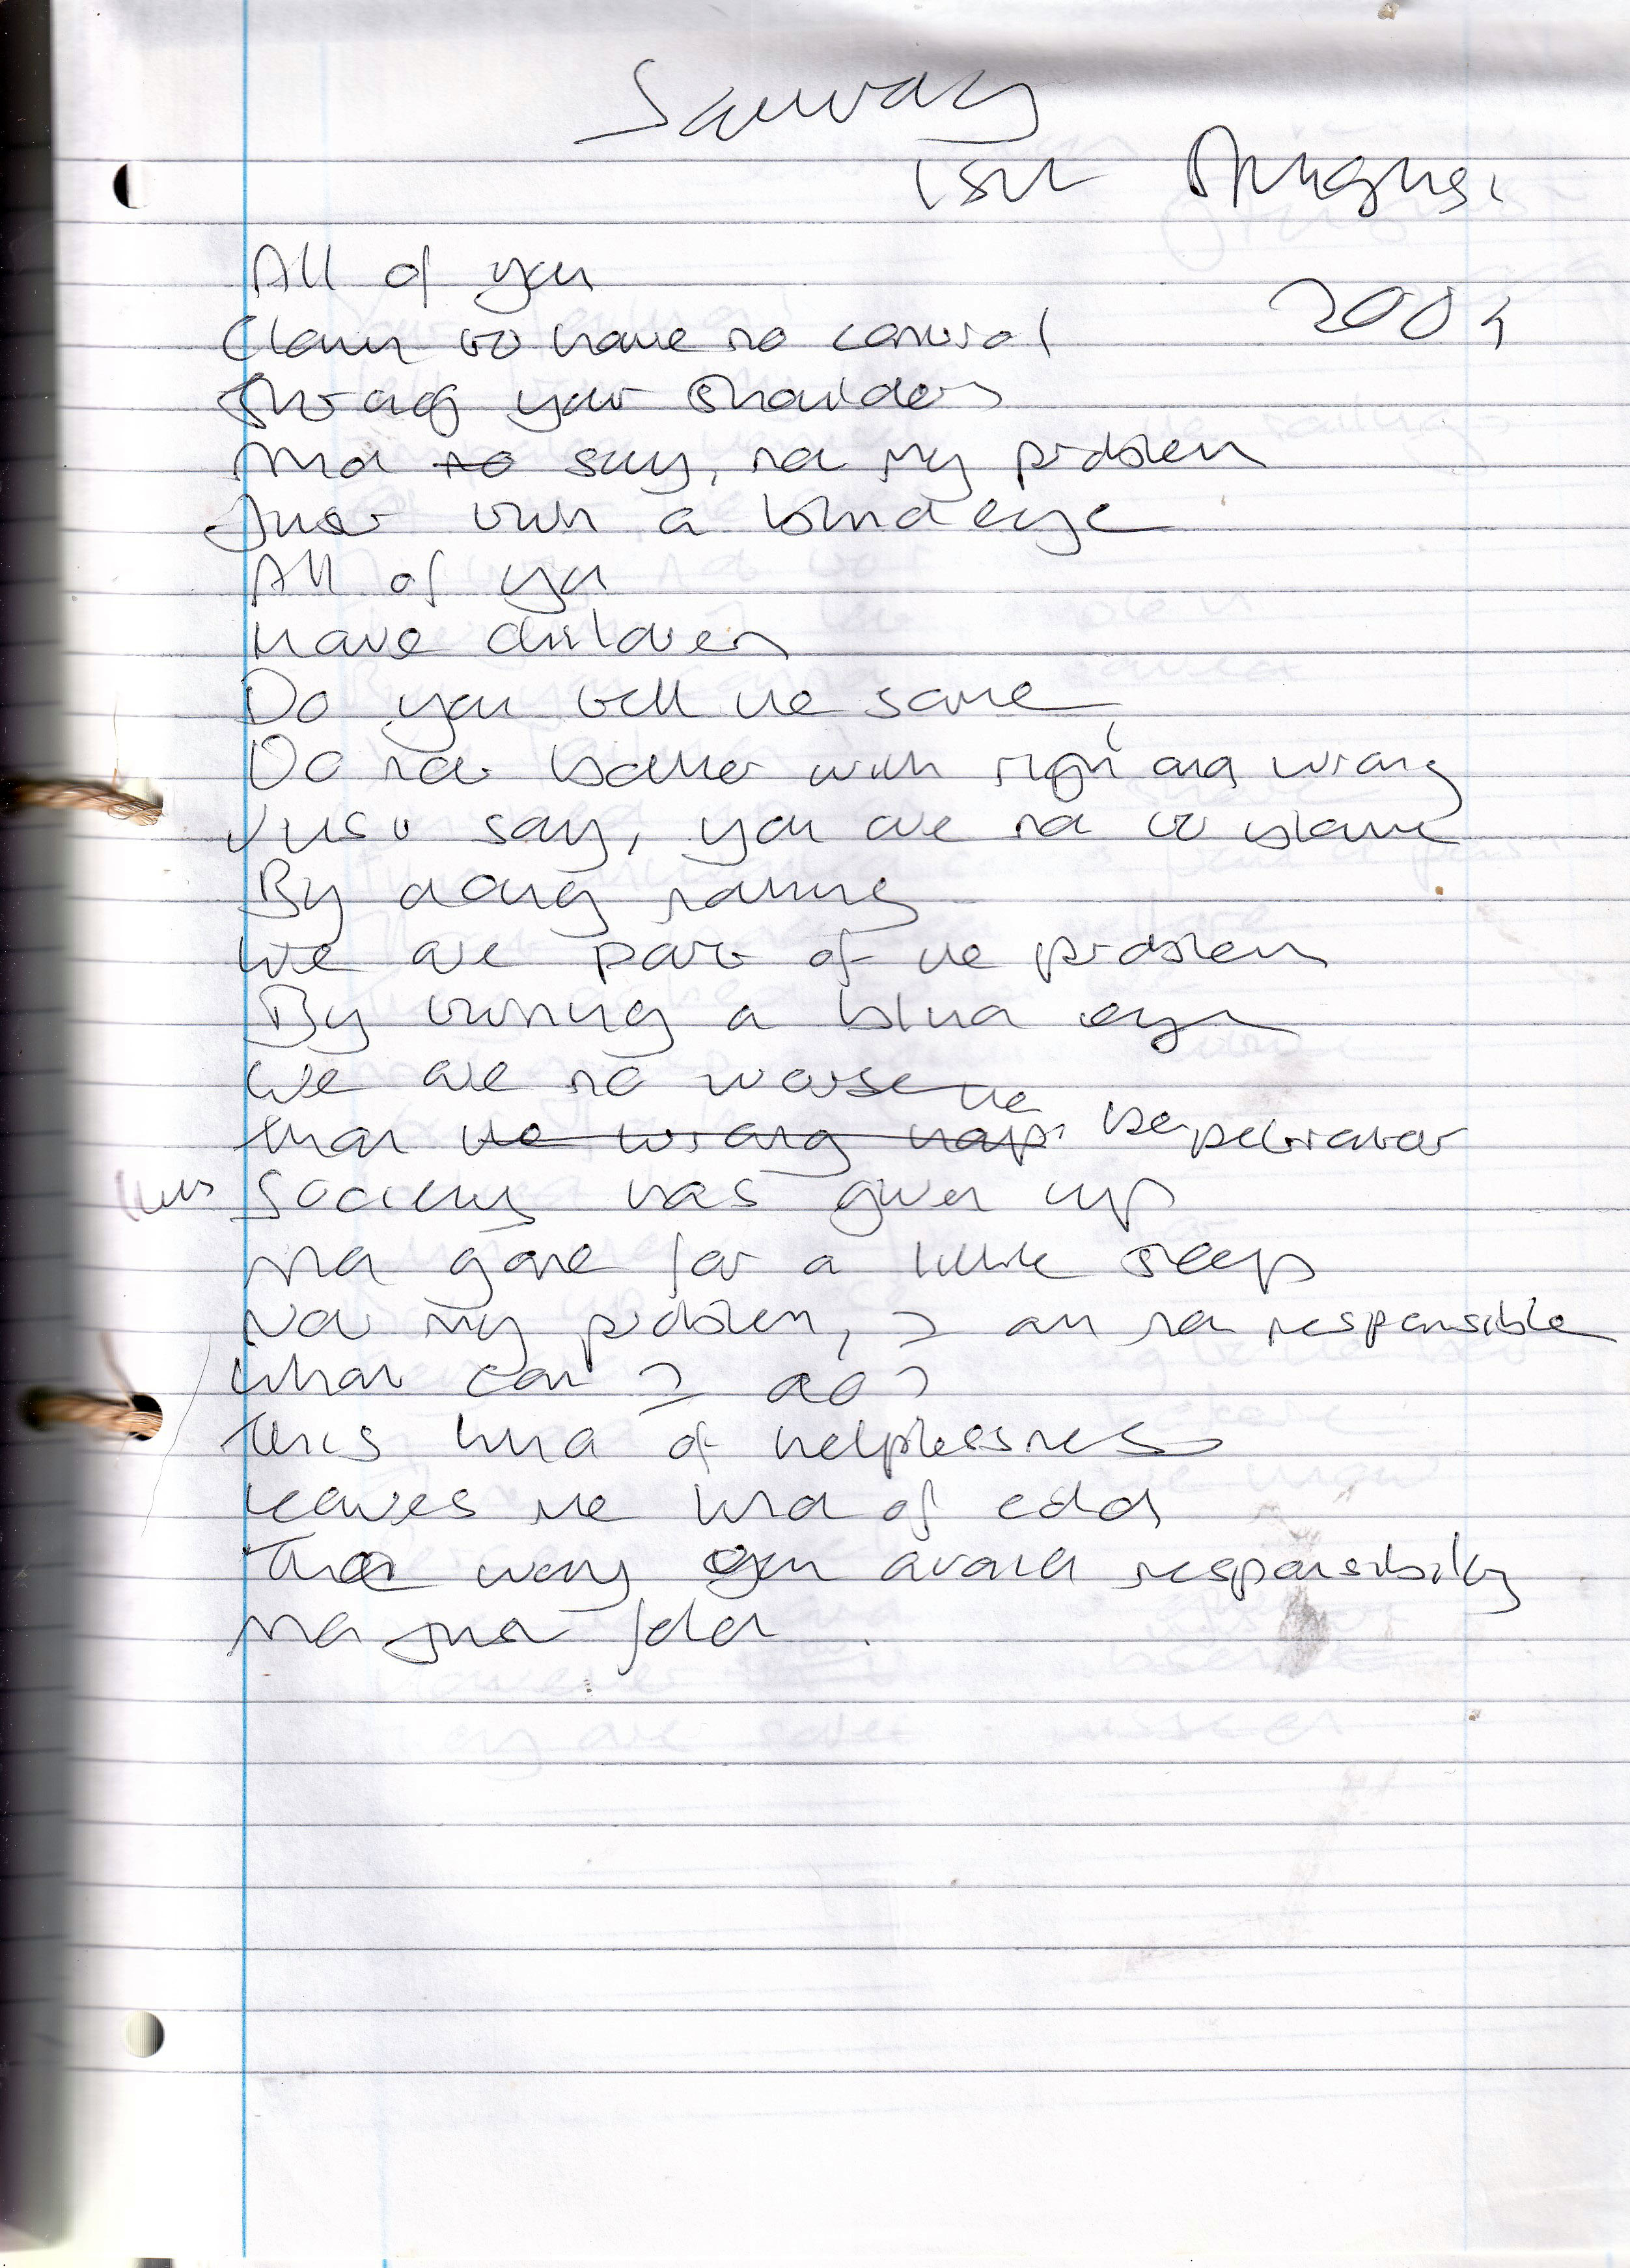 Sunday
15th August
2004
All of you
Claim to have no control
Shrug your shoulders
And to say, not my problem
Just turn a blind eye
All of you
have children
Do you tell the same
Do not bother with right and wrong
Just say, you are not to blame
By doing nothing
We are part of the problem
By turning a blind eye
We are no worse
the
than the wrong perpetrator
this Society has given up
And gone for a little sleep
Not my problem, I am not responsible
What can I do?
This kind of helplessness
Leaves me kind of cold
That way you avoid responsibility
And just fold